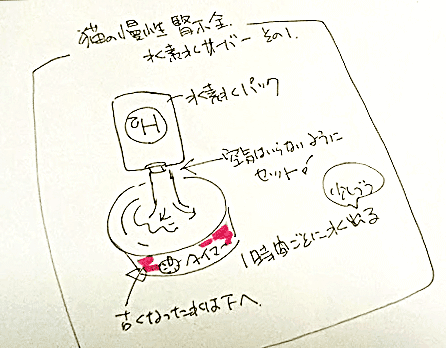 猫の慢性腎不全
水素水サーバー その1.
水素水パック
H2
空気はいらないように
セット!
少しづつ
1時間ごとに水出る
タイマー
古くなった水は下へ